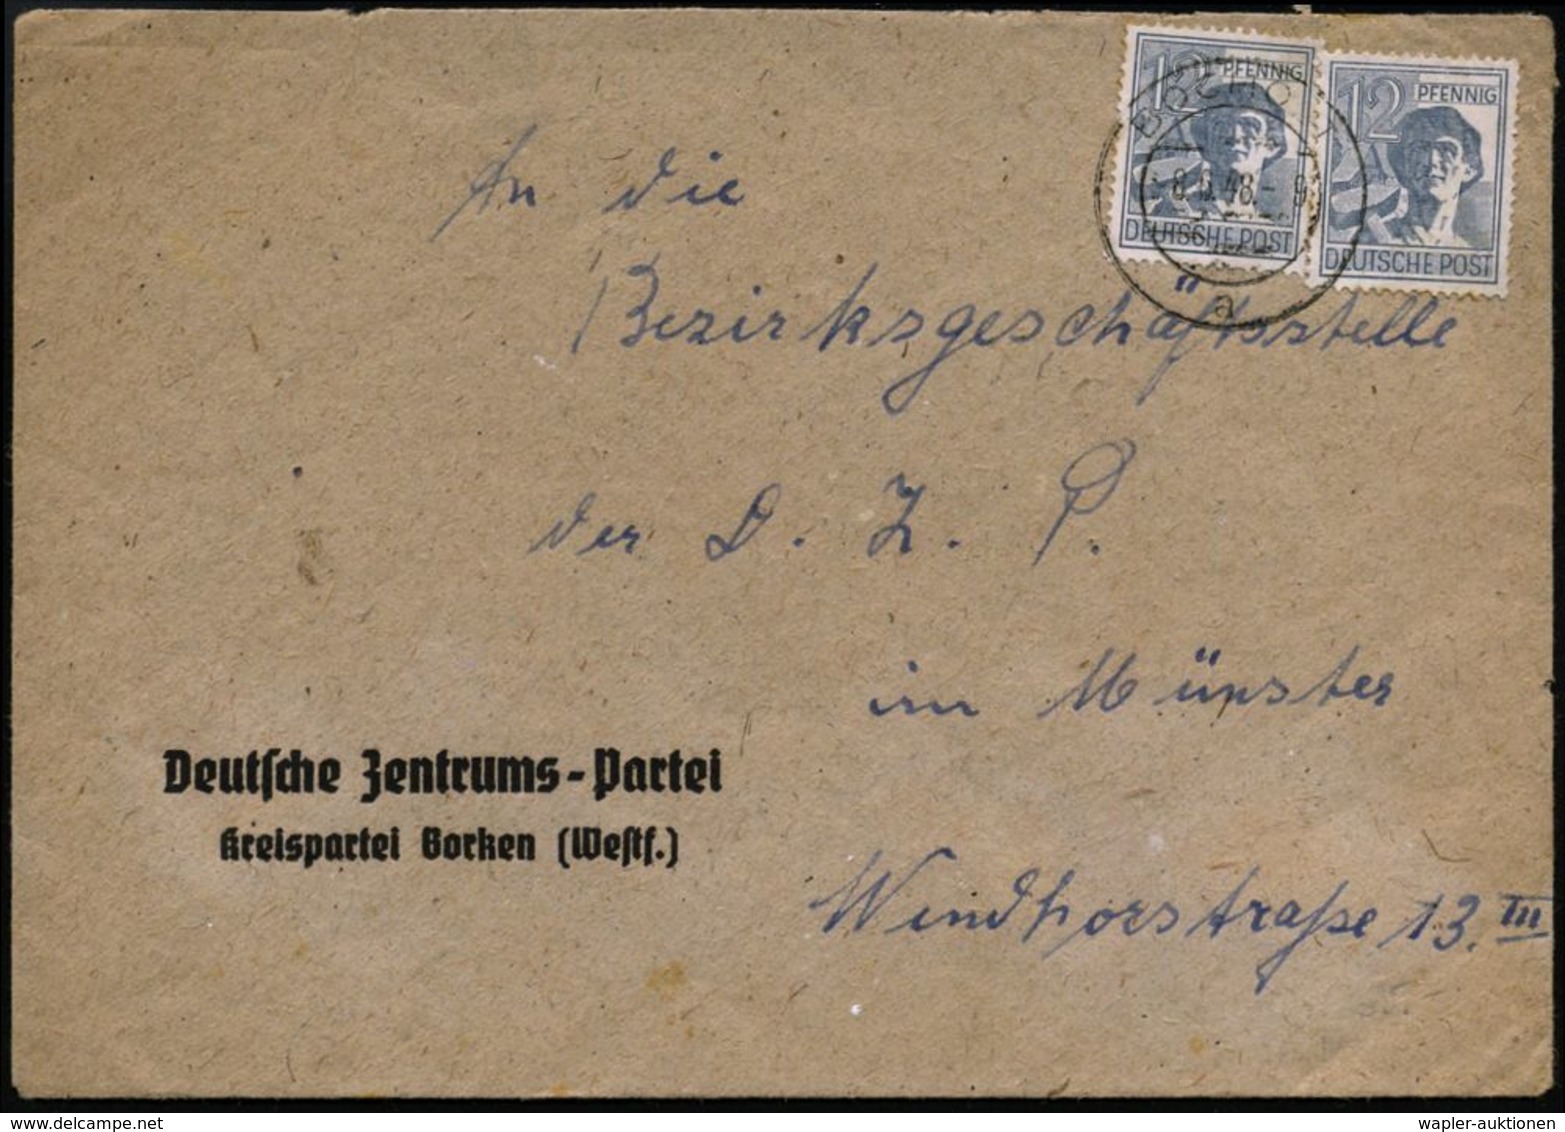 12 PFENNIG
DEUTSCHE POST
12 PFENNIG
DEUTSCHE POST
BOCHOLT
8.6.48.- 9
a
An die
Bezirksgeschäftsstelle
der D. Z. P.
in Münster
Windhorstraße 13. III
Deutsche Zentrums-Partei
Kreispartei Borken (Westf.)
wapler-auktionen